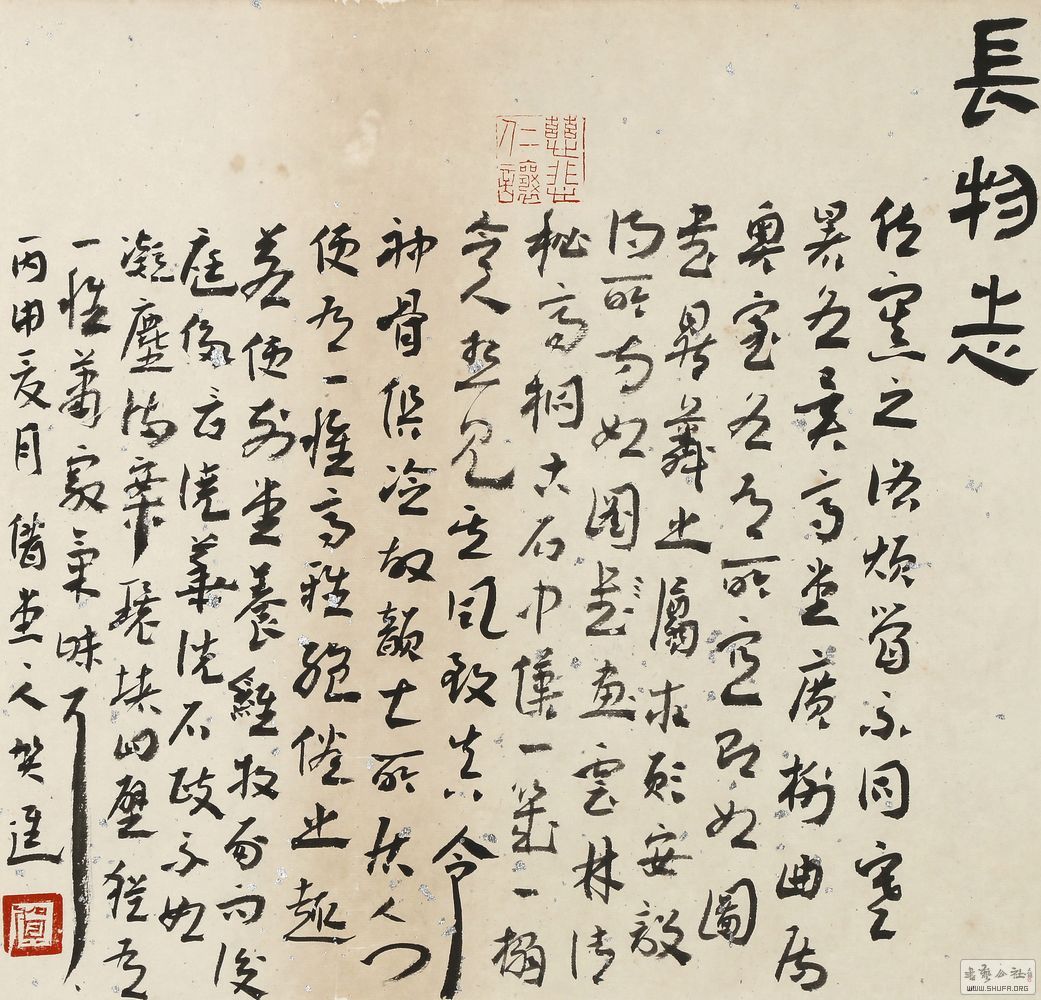 長物志
位寘之法煩簡不同寒
暑各異高堂廣榭曲房
奥室各有所宜即如圖
書鼎彝之屬亦須安設
得所方如圖書畫雲林清
秘高桐古石中僅一幾一榻
令人想見其風致真令
神骨俱冷故韻士所居入門
便有一種高雅絕俗之趣
若使前堂養雞牧豕而後
庭侈言澆華洗石政不如
凝塵滿案環堵四壁猶有
一種蕭寂氣味耳
丙申夏月 堂之人賀進
慈悲仁讓
賀
書藝公社
WWW.SHUFA.ORG